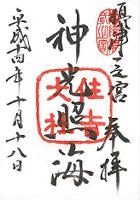 一之宮 奉拝
神光照海
住吉
大社
平成十四年十月十八日